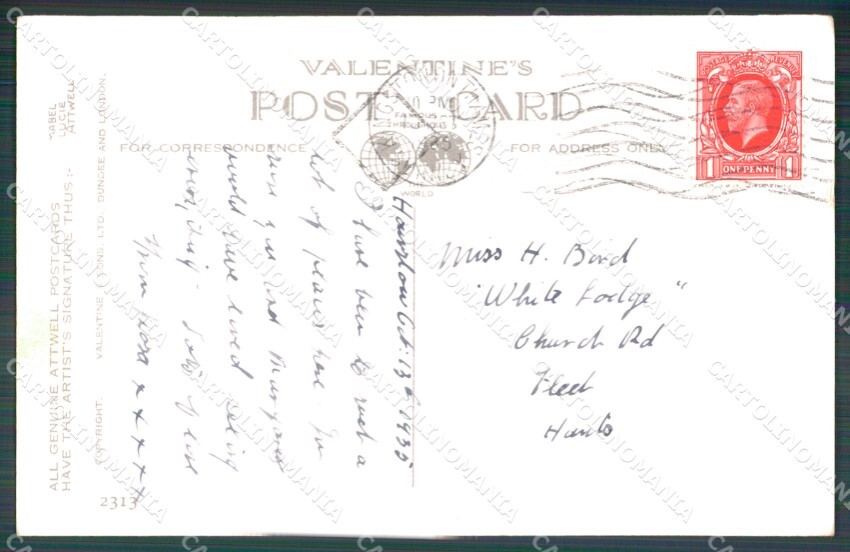 VALENTINE'S
POST CARD
FAMOUS
THROUGHOUT
WORLD
FOR CORRESPONDENCE
FOR ADDRESS ONLY
POSTAGE REVENUE
1 ONE PENNY 1
Miss H. Bird
"White Lodge"
Church Rd
Fleet
Hants
Hounslow Oct. 13th 1935
I have been to such a
lot of places here. I'm
sure you and Margaret
would have loved seeing
everything - Lots of love
from
x x x x x
ALL GENUINE ATTWELL POSTCARDS
HAVE THE ARTIST'S SIGNATURE THUS:-
MABEL
LUCIE
ATTWELL
COPYRIGHT. VALENTINE & SONS, LTD. DUNDEE AND LONDON.
2313
CARTOLINOMANIA